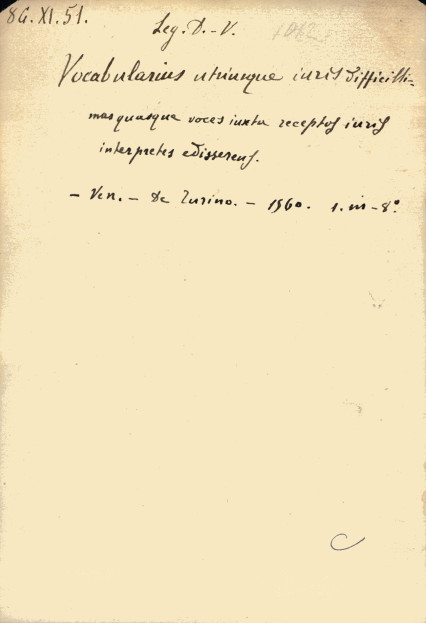 86.XI.51.
Leg. D.-V.
Vocabularius utriusque iuris difficilli=
mas quasque voces iuxta receptos iuris
interpretes edisserens.
- Ven. - De Turino. - 1560. 1. in - 8°.
C